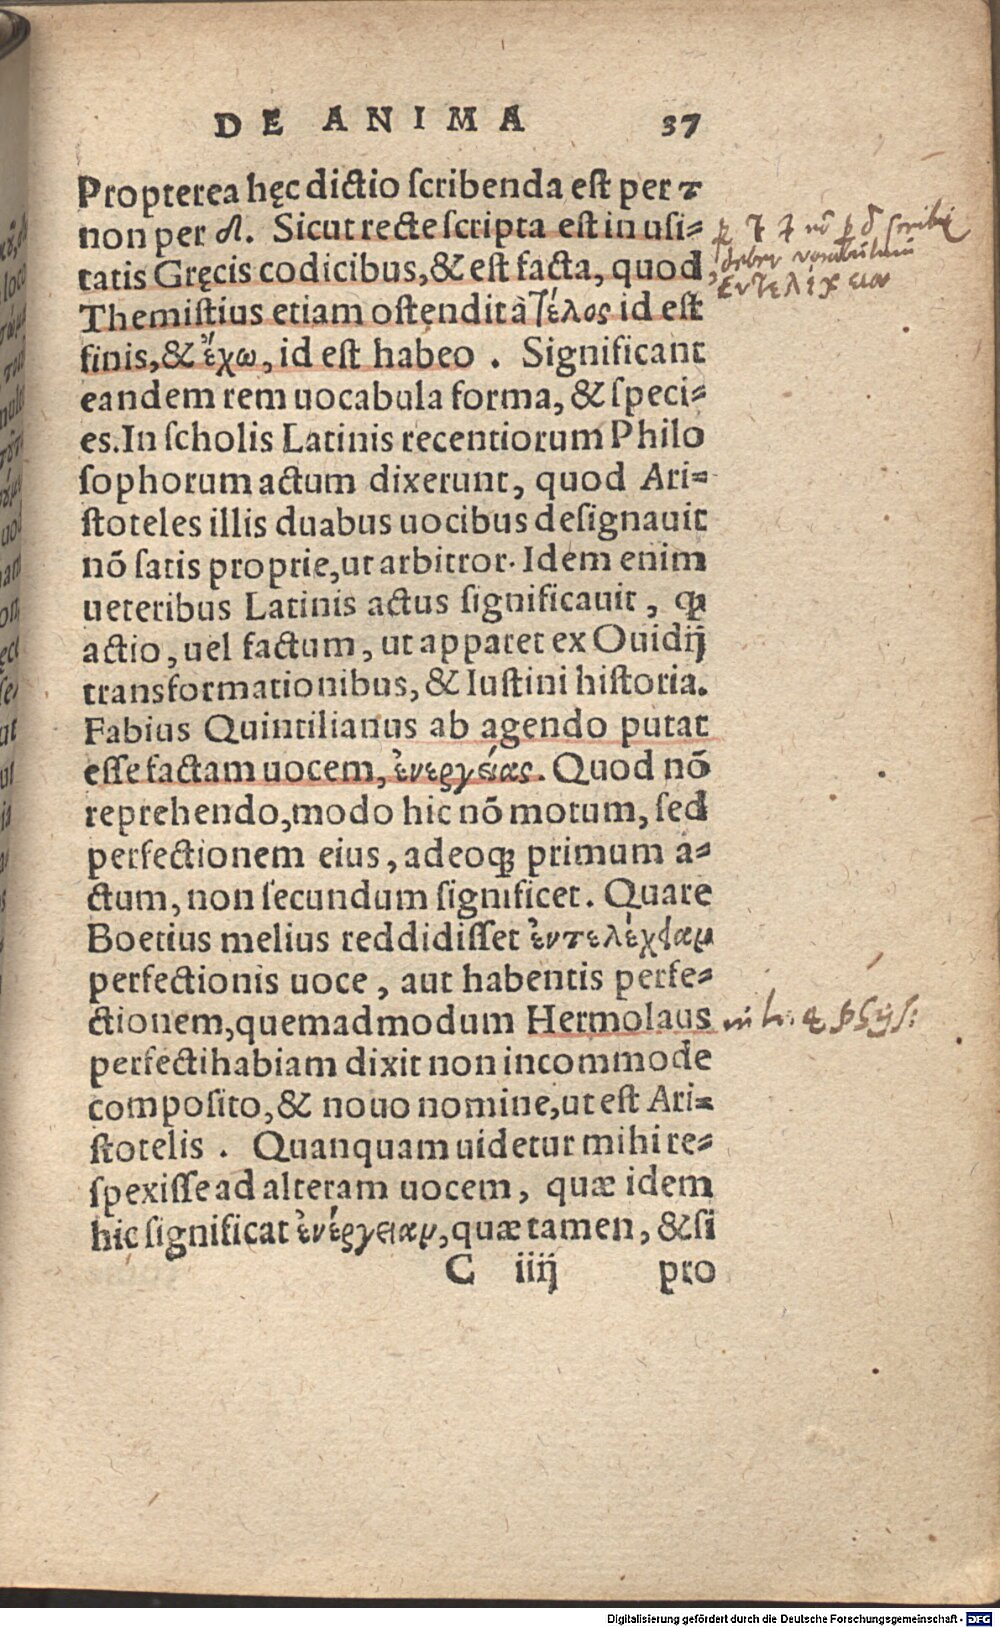 DE ANIMA 37
Propterea hęc dictio ſcribenda eſt per τ
non per δ. Sicut recte ſcripta eſt in uſi-
tatis Gręcis codicibus, & eſt facta, quod
Themiſtius etiam oſtendit à τέλος id eſt
finis, & ἔχω, id eſt habeo . Significant
eandem rem uocabula forma, & ſpeci-
es. In ſcholis Latinis recentiorum Philo
ſophorum actum dixerunt, quod Ari-
ſtoteles illis duabus uocibus deſignauit
nõ ſatis proprie, ut arbitror. Idem enim
ueteribus Latinis actus ſignificauit, ꝙ
actio, uel factum, ut apparet ex Ouidij
transformationibus, & Iuſtini hiſtoria.
Fabius Quintilianus ab agendo putat
eſſe factam uocem, ἐνεργείας. Quod nõ
reprehendo, modo hic nõ motum, ſed
perfectionem eius, adeoꝗ primum a-
ctum, non ſecundum ſignificet. Quare
Boetius melius reddidiſſet ἐντελέχειαμ
perfectionis uoce, aut habentis perfe-
ctionem, quemadmodum Hermolaus
perfectihabiam dixit non incommode
compoſito, & nouo nomine, ut eſt Ari-
ſtotelis . Quanquam uidetur mihi re-
ſpexiſſe ad alteram uocem, quæ idem
hic ſignificat ἐνέργειαμ, quæ tamen, & ſi
C iiij pro
nõ p δ ſcribi
debet vocabulum
ἐντελέχεια
Digitalisierung gefördert durch die Deutsche Forschungsgemeinschaft - DFG